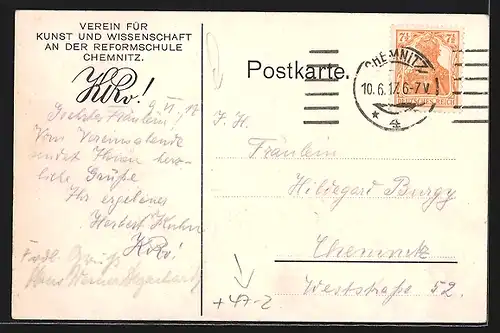 VEREIN FÜR
KUNST UND WISSENSCHAFT
AN DER REFORMSCHULE
CHEMNITZ.
KRv!
9. VI. 17
Geehrtes Fräulein!
Vom Vereinsabende
sendet Ihnen herz-
liche Grüße
Ihr ergebener
Herbert Kuhn
KRv!
Frdl. Gruß
Hans Werner
Postkarte.
7½ 7½
DEUTSCHES REICH
CHEMNITZ
10.6.17.6-7V.
* 4
I. H.
Fräulein
Hildegard Burgy
Chemnitz
Weststraße 52.
+47-2